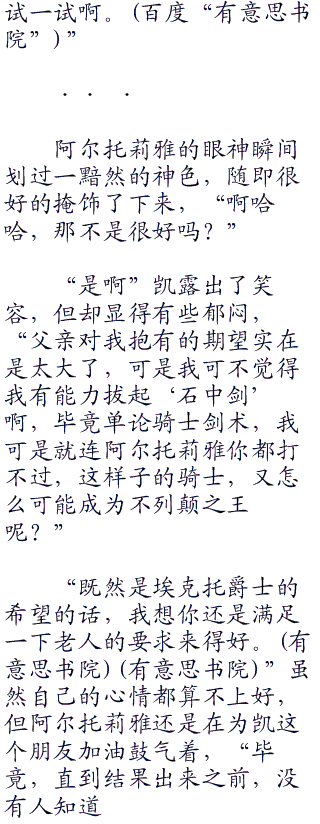 试一试啊。(百度“有意思书
院”)”
． ． ．
阿尔托莉雅的眼神瞬间
划过一黯然的神色，随即很
好的掩饰了下来，“啊哈
哈，那不是很好吗？”
“是啊”凯露出了笑
容，但却显得有些郁闷，
“父亲对我抱有的期望实在
是太大了，可是我可不觉得
我有能力拔起‘石中剑’
啊，毕竟单论骑士剑术，我
可是就连阿尔托莉雅你都打
不过，这样子的骑士，又怎
么可能成为不列颠之王
呢？”
“既然是埃克托爵士的
希望的话，我想你还是满足
一下老人的要求来得好。(有
意思书院)(有意思书院)”虽
然自己的心情都算不上好，
但阿尔托莉雅还是在为凯这
个朋友加油鼓气着，“毕
竟，直到结果出来之前，没
有人知道